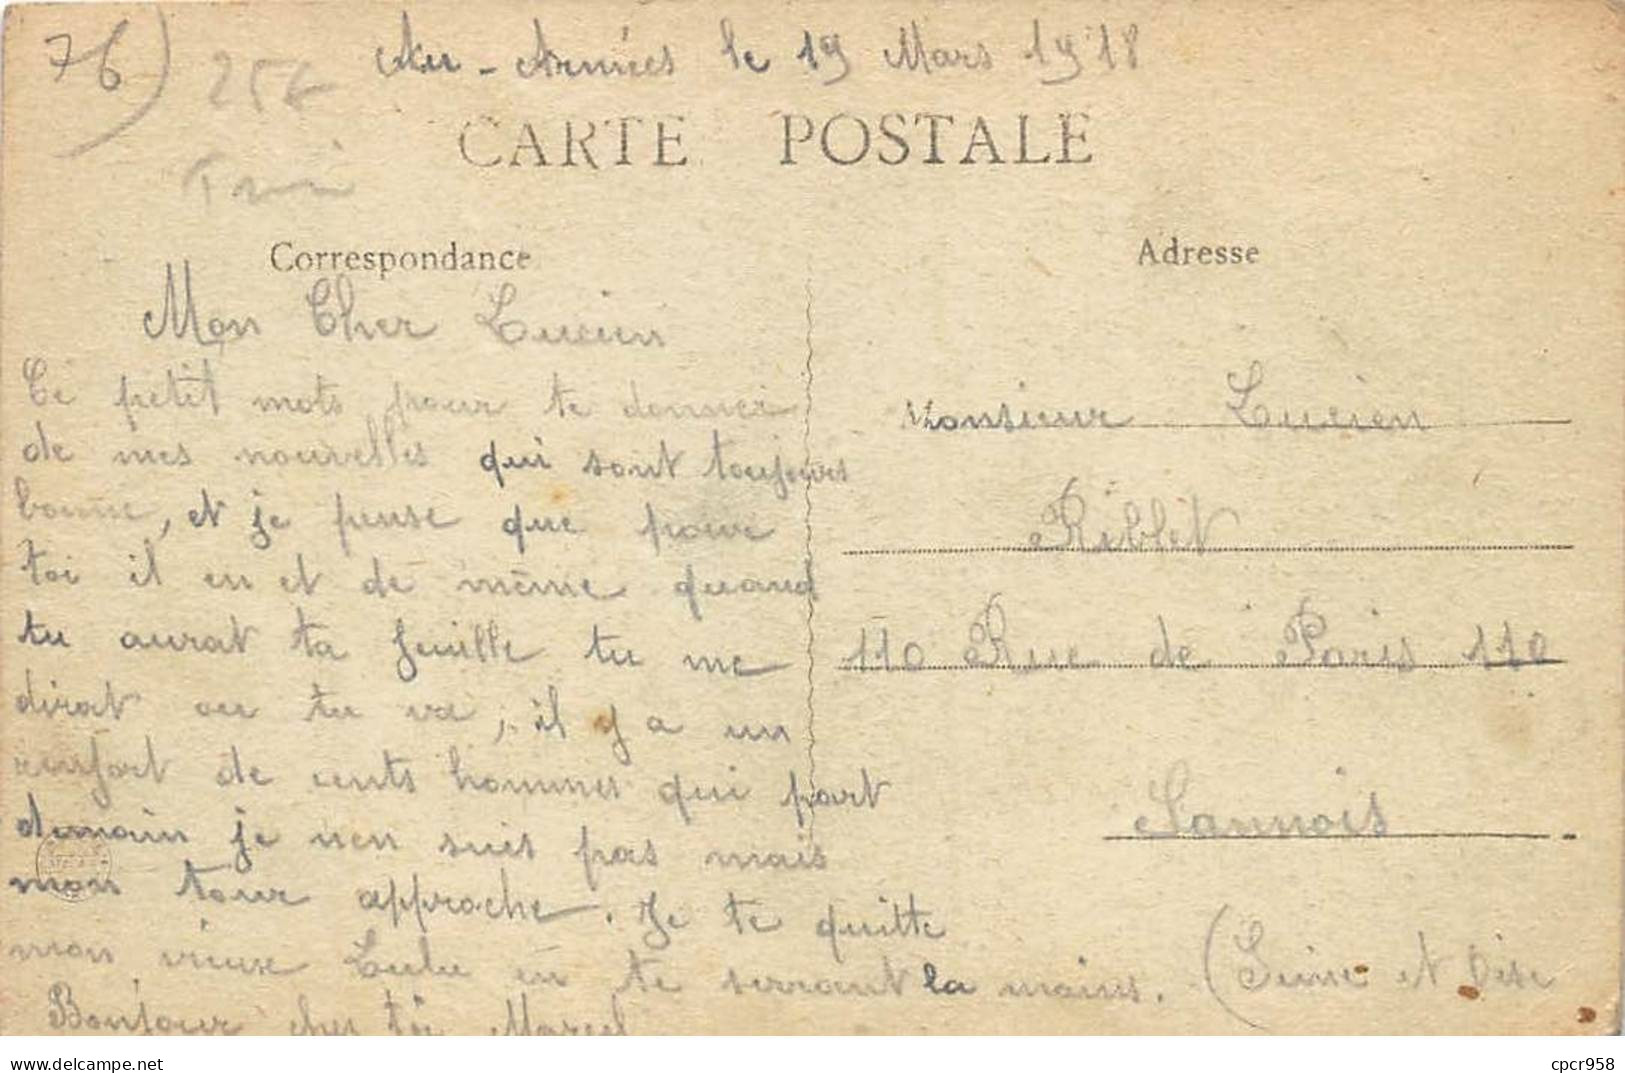 76) 25f Au - Armées le 19 Mars 1918
CARTE POSTALE
Correspondance
Adresse
Mon Cher Lucien
Ce petit mots pour te donner
de mes nouvelles qui sont toujours
bonne, et je pense que pour
toi il en et de même quand
tu aurat ta feuille tu me
dirat ou tu va, il y a un
renfort de cents hommes qui part
demain je nen suis pas mais
mon tour approche. Je te quitte
mon vieux Lulu en te serrant la mains.
Bonjour chez toi Marcel
Monsieur Lucien
Riblet
110 Rue de Paris 110
Sannois
(Seine et Oise
delcampe.net
cpcr958